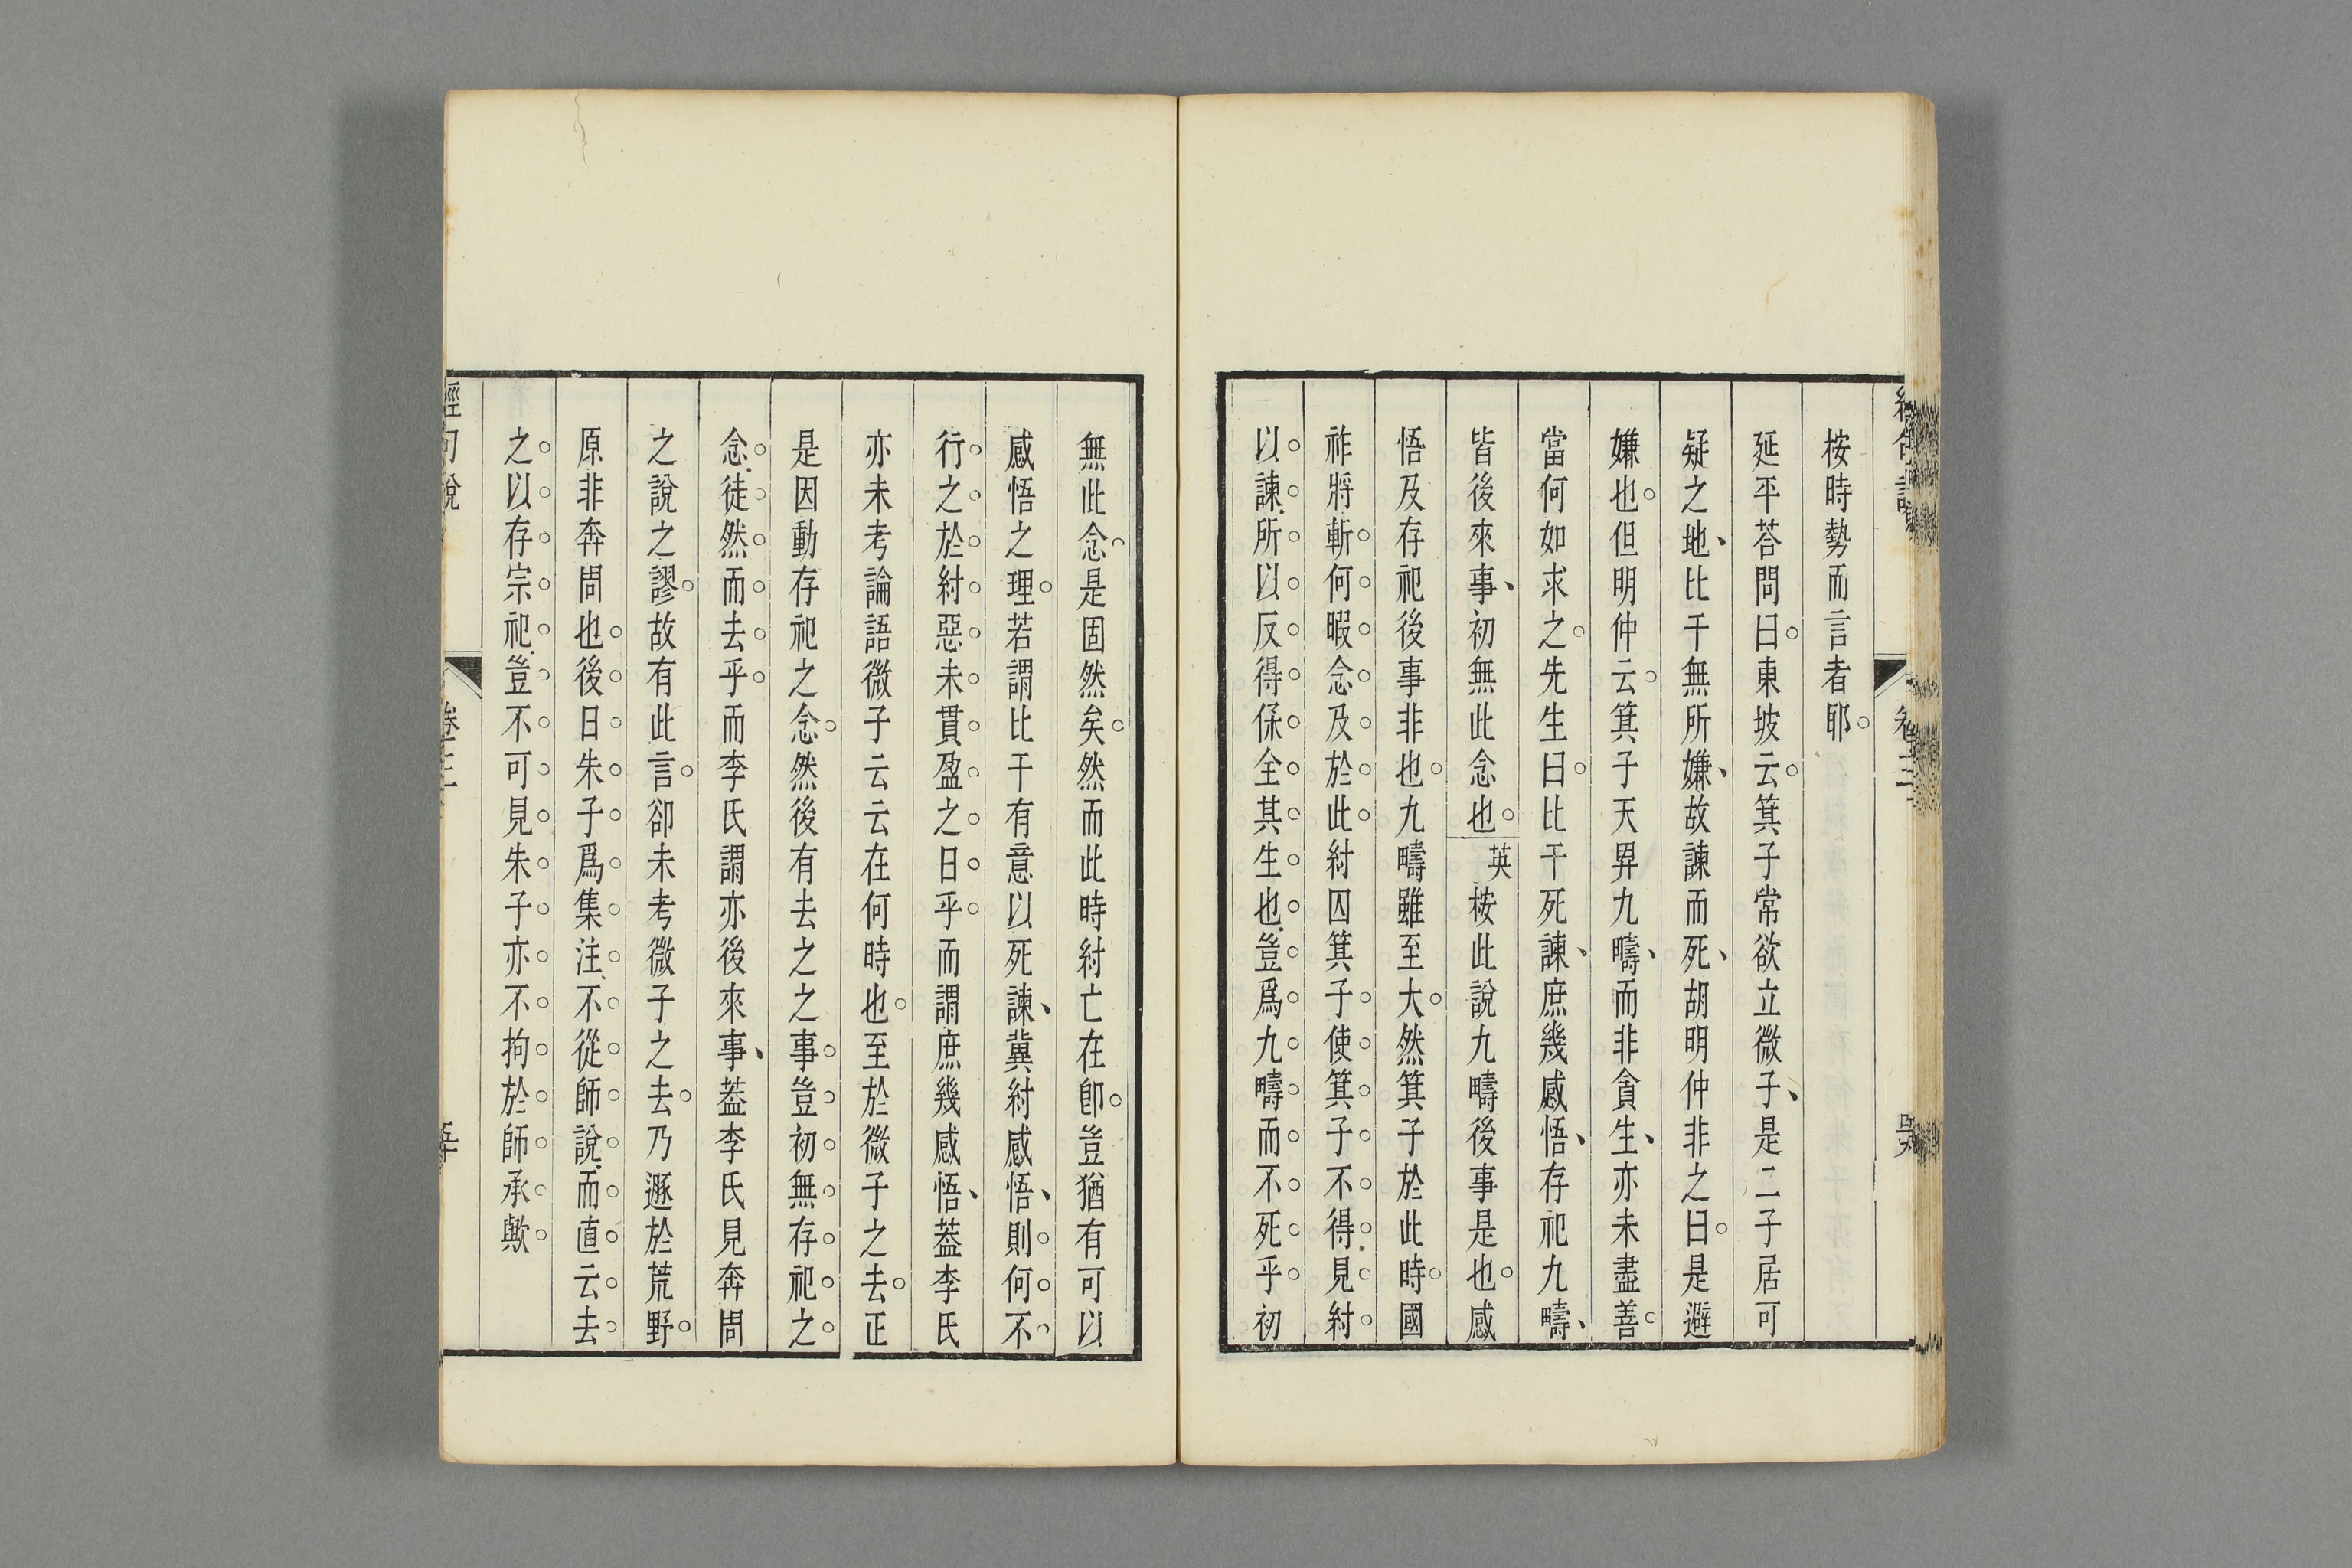 按時勢而言者耶
延平荅問曰東坡云箕子常欲立微子是二子居可
疑之地比干無所嫌故諫而死胡明仲非之曰是避
嫌也但明仲云箕子天畀九疇而非貪生亦未盡善
當何如求之先生曰比干死諫庶幾感悟存祀九疇
皆後來事初無此念也英按此說九疇後事是也感
悟及存祀後事非也九疇雖至大然箕子於此時國
祚將斬何暇念及於此紂囚箕子使箕子不得見紂
以諫所以反得保全其生也豈爲九疇而不死乎初
無此念是固然矣然而此時紂亡在卽豈猶有可以
感悟之理若謂比干有意以死諫冀紂感悟則何不
行之於紂惡未貫盈之日乎而謂庶幾感悟葢李氏
亦未考論語微子云云在何時也至於微子之去正
是因動存祀之念然後有去之之事豈初無存祀之
念徒然而去乎而李氏謂亦後來事葢李氏見奔周
之說之謬故有此言卻未考微子之去乃遯於荒野
原非奔周也後日朱子爲集注不從師說而直云去
之以存宗祀豈不可見朱子亦不拘於師承歟
經句說
卷三